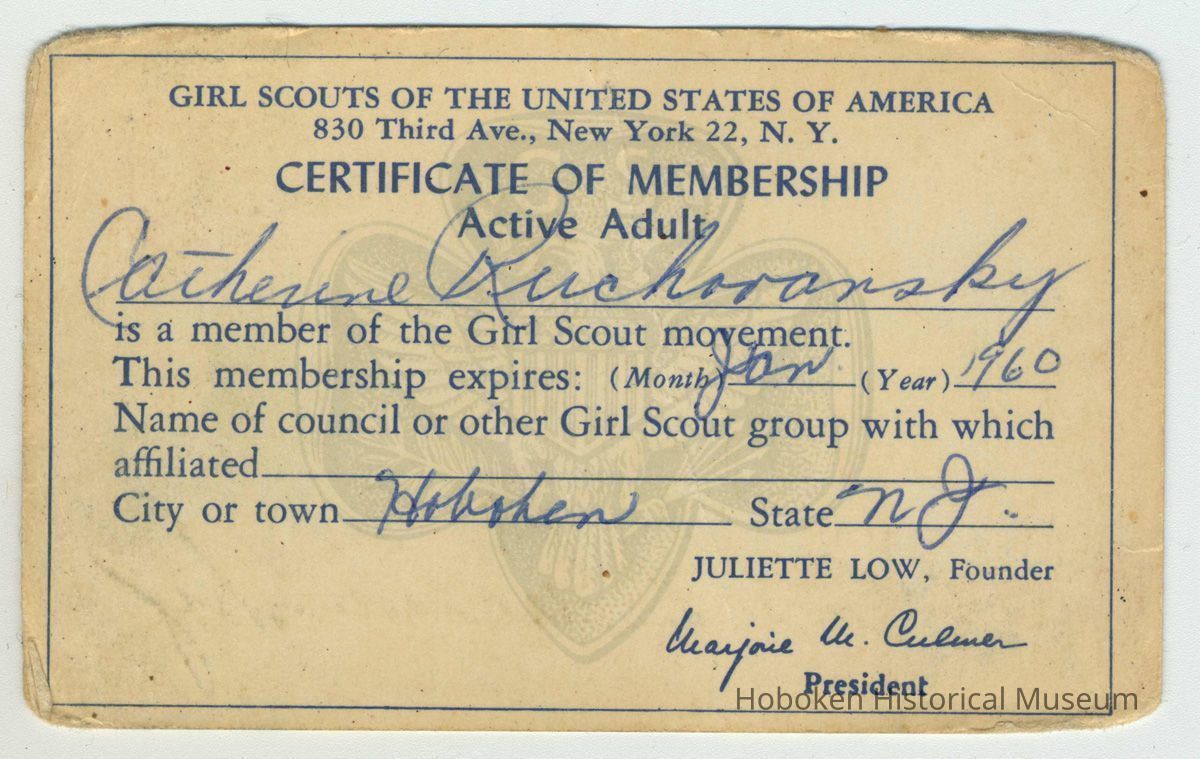 GIRL SCOUTS OF THE UNITED STATES OF AMERICA
830 Third Ave., New York 22, N. Y.
CERTIFICATE OF MEMBERSHIP
Active Adult
Catherine Ruchovansky
is a member of the Girl Scout movement.
This membership expires: (Month) Jan. (Year) 1960
Name of council or other Girl Scout group with which
affiliated
City or town Hoboken State N J.
JULIETTE LOW, Founder
Marjorie M. Culmer
President
Hoboken Historical Museum